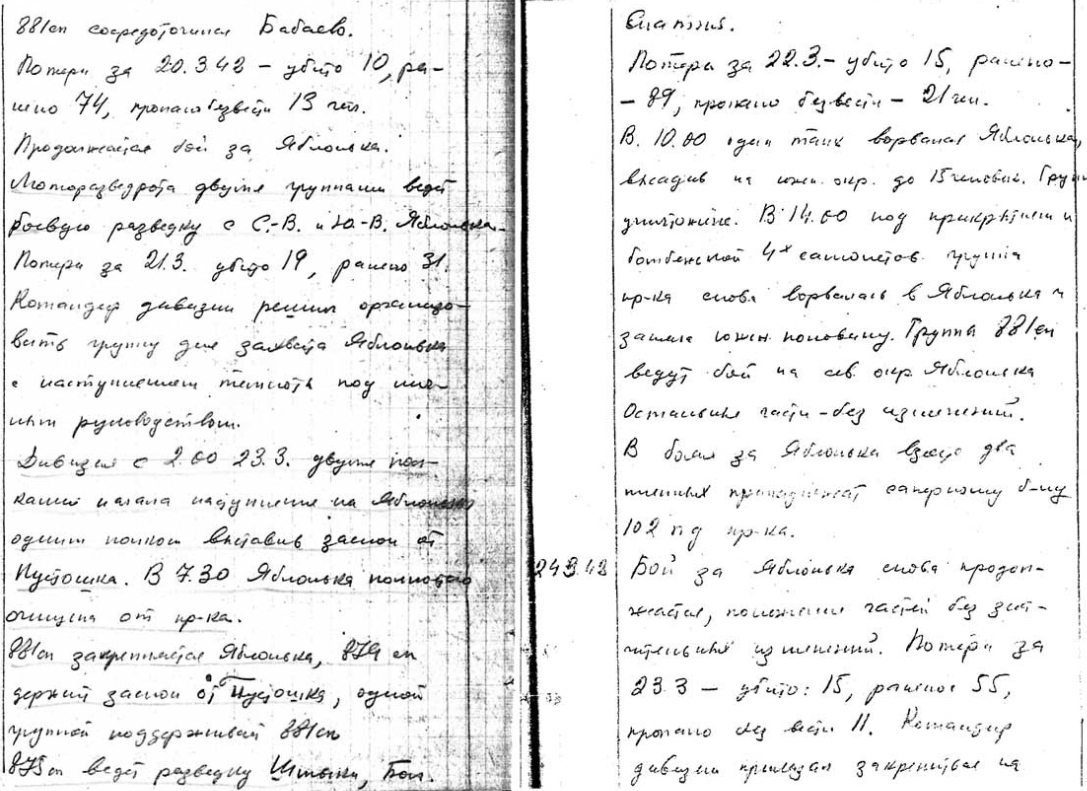 881сп сосредоточился Бабаево.
Потери за 20.3.43 – убито 10, ра-
нено 74, пропало безвести 13 чел.
Продолжается бой за Яблонька.
Моторазведрота двумя группами ведет
боевую разведку с С.-В. и Ю.-В. Яблонька.
Потери за 21.3. убито 19, ранено 31.
Командир дивизии решил организо-
вать группу для захвата Яблонька
с наступлением темноты под
руководством.
Дивизия с 2.00 23.3. двумя пол-
ками начала наступление на Яблонька
одним полком выставив заслон от
Пустошка. В 7.30 Яблонька полностью
очищена от пр-ка.
881сп закрепляется Яблонька, 879 сп
держит заслон от Пустошка, одной
группой поддерживает 881сп
875сп ведет разведку Бол.
Потери за 22.3.– убито 15, ранено –
– 89, пропало безвести – 21 чел.
В 10.00 один танк ворвался Яблонька,
высадив на южн. окр. до 15 человек. Груп
уничтожена. В 14.00 под прикрытием и
бомбежкой 4х самолетов группа
пр-ка снова ворвалась в Яблонька и
заняла южн. половину. Группа 881сп
ведут бой на сев. окр. Яблонька
Остальные части – без изменений.
В боях за Яблонька взято два
пленных принадлежат саперному б-ну
102 пд пр-ка.
24.3.43 Бой за Яблонька снова продол-
жается, положение частей без зна-
чительных изменений. Потери за
23.3 – убито: 15, ранено 55,
пропало без вести 11. Командир
дивизии приказал закрепиться на